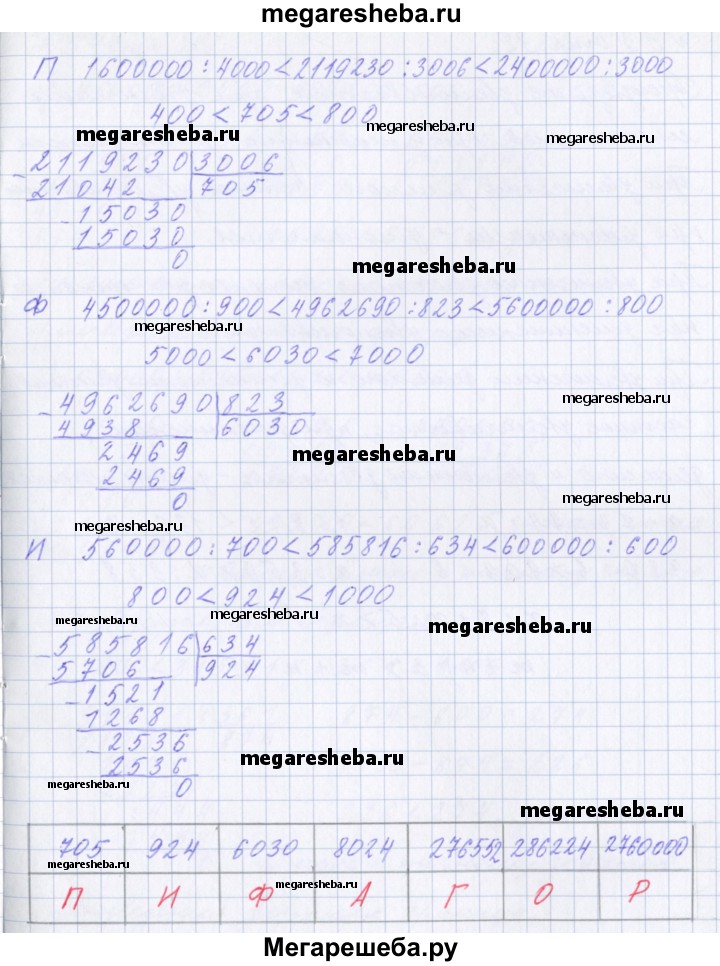 megaresheba.ru
П 1600000 : 4000 < 2119230 : 3006 < 2400000 : 3000
400 < 705 < 800
megaresheba.ru megaresheba.ru megaresheba.ru
- 2119230 | 3006
21042 | 705
- 15030
15030
0
megaresheba.ru
Ф 4500000 : 900 < 4962690 : 823 < 5600000 : 800
megaresheba.ru
5000 < 6030 < 7000
megaresheba.ru
- 4962690 | 823
4938 | 6030
2469
megaresheba.ru
2469
0
megaresheba.ru
megaresheba.ru
И 560000 : 700 < 585816 : 634 < 600000 : 600
800 < 924 < 1000
megaresheba.ru megaresheba.ru megaresheba.ru
- 585816 | 634
5706 | 924
- 1521
1268
- 2536
megaresheba.ru
2536
megaresheba.ru 0
megaresheba.ru
705 924 6030 8024 276552 286224 2760000
megaresheba.ru megaresheba.ru
П И Ф А Г О Р
Мегарешеба.ру